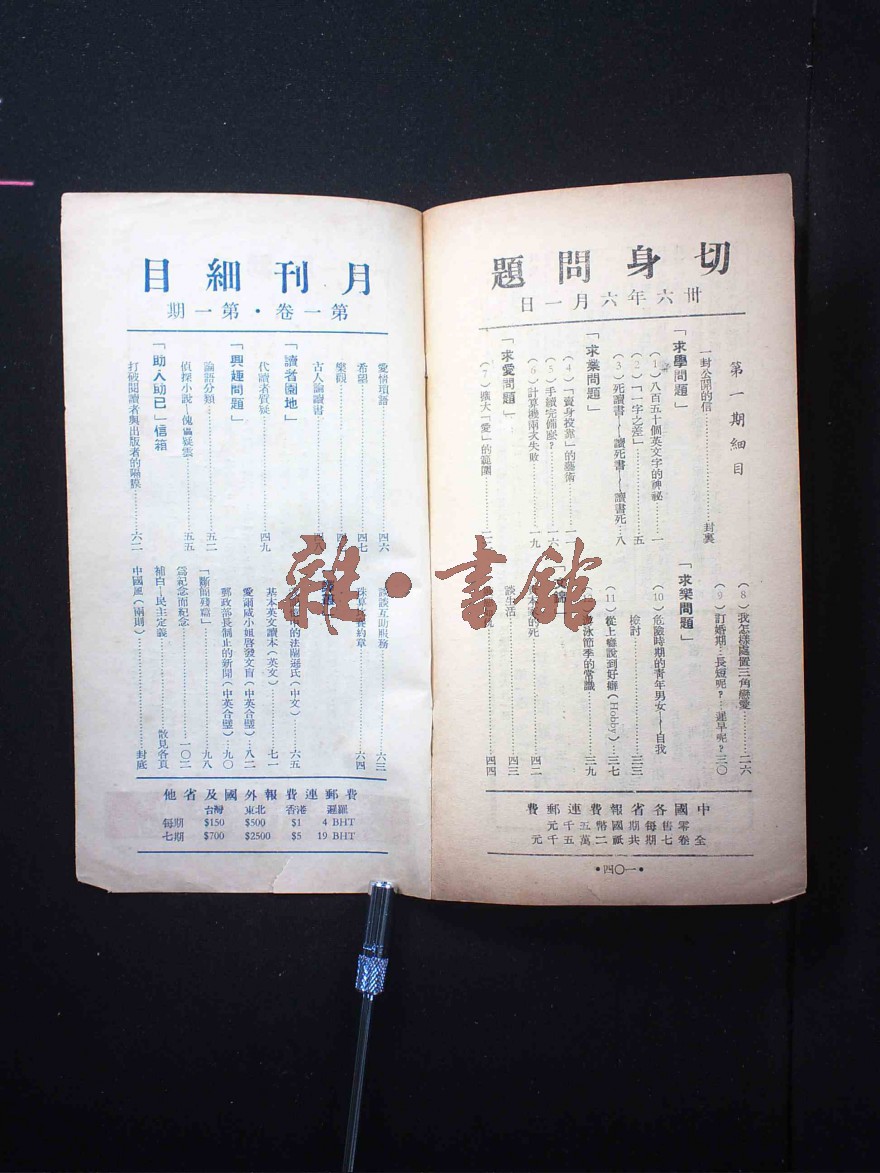 切身問題
卅六年六月一日
第一期細目
一封公開的信 封裏
「求學問題」
(1)八百五十個英文字的神祕 一
(2)「一字之差」 五
(3)死讀書—讀死書—讀書死 八
「求業問題」
(4)「賣身投靠」的藝術 一一
(5)手續完備麼? 一六
(6)計算機兩次失敗 一九
「求愛問題」
(7)擴大「愛」的範圍
(8)我怎樣處置三角戀愛 二六
(9)訂婚期—長短呢?—遲早呢? 三〇
「求樂問題」
(10)危險時期的青年男女—自我
檢討 三三
(11)從上癮說到好癖(Hobby) 三七
泳節季的常識 三九
的死 四二
談生活 四三
四四
中國各省報費連郵費
零售每期國幣五千元
全卷七期共祇二萬五千元
•四〇一•
月刊細目
第一卷•第一期
愛情瑣語 四六
希望 四七
樂觀
古人論讀書 四八
「讀者園地」
代讀者質疑 四九
「興趣問題」
論語分類 五二
偵探小說—傀儡疑雲 五五
「助人助己」信箱
打破閱讀者與出版者的隔膜 六二
談談互助服務 六三
珠算 約章 六四
的法關遜氏(中文) 六五
基本英文讀本(英文) 七一
愛爾咸小姐啓發文盲(中英合璧) 八二
郵政部長制止的新聞(中英合璧) 九〇
「斷簡殘篇」 九八
爲記念而紀念 一〇二
補白—民主定義 散見各頁
中國風(兩則) 封底
他省及國外報費連郵費
台灣 東北 香港 暹羅
每期 $150 $500 $1 4 BHT
七期 $700 $2500 $5 19 BHT
雜•書館